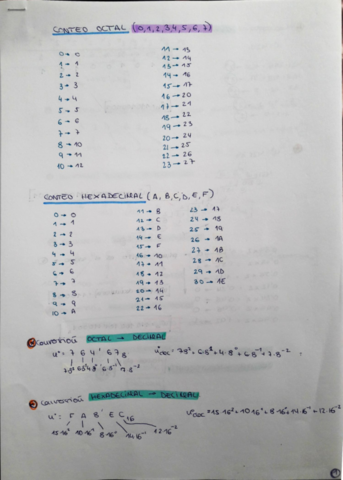 CONTEO OCTAL (0,1,2,3,4,5,6,7)
0→0
1→1
2→2
3→3
4→4
5→5
6→6
7→7
8→10
9→11
10→12
11→13
12→14
13→15
14→16
15→17
16→20
17→21
18→22
19→23
20→24
21→25
22→26
23→27
CONTEO HEXADECIMAL (A, B, C, D, E, F)
0→0
1→1
2→2
3→3
4→4
5
6→6
7→7
8→8
9→9
10→A
11→B
12→C
13→D
14→E
15→F
16→10
17→11
18→12
19→13
20→14
21→15
22→16
23→17
24→18
25→19
26→1A
27→1B
28→1C
29→1D
30→1E
OCTAL → DECIMAL
7 6 4 ' 6 7 8
HEXADECIMAL → DECIMAL
F A B ' E C 16
15·16² 10·16¹ 8·16⁰ 14·16⁻¹ 12·16⁻²